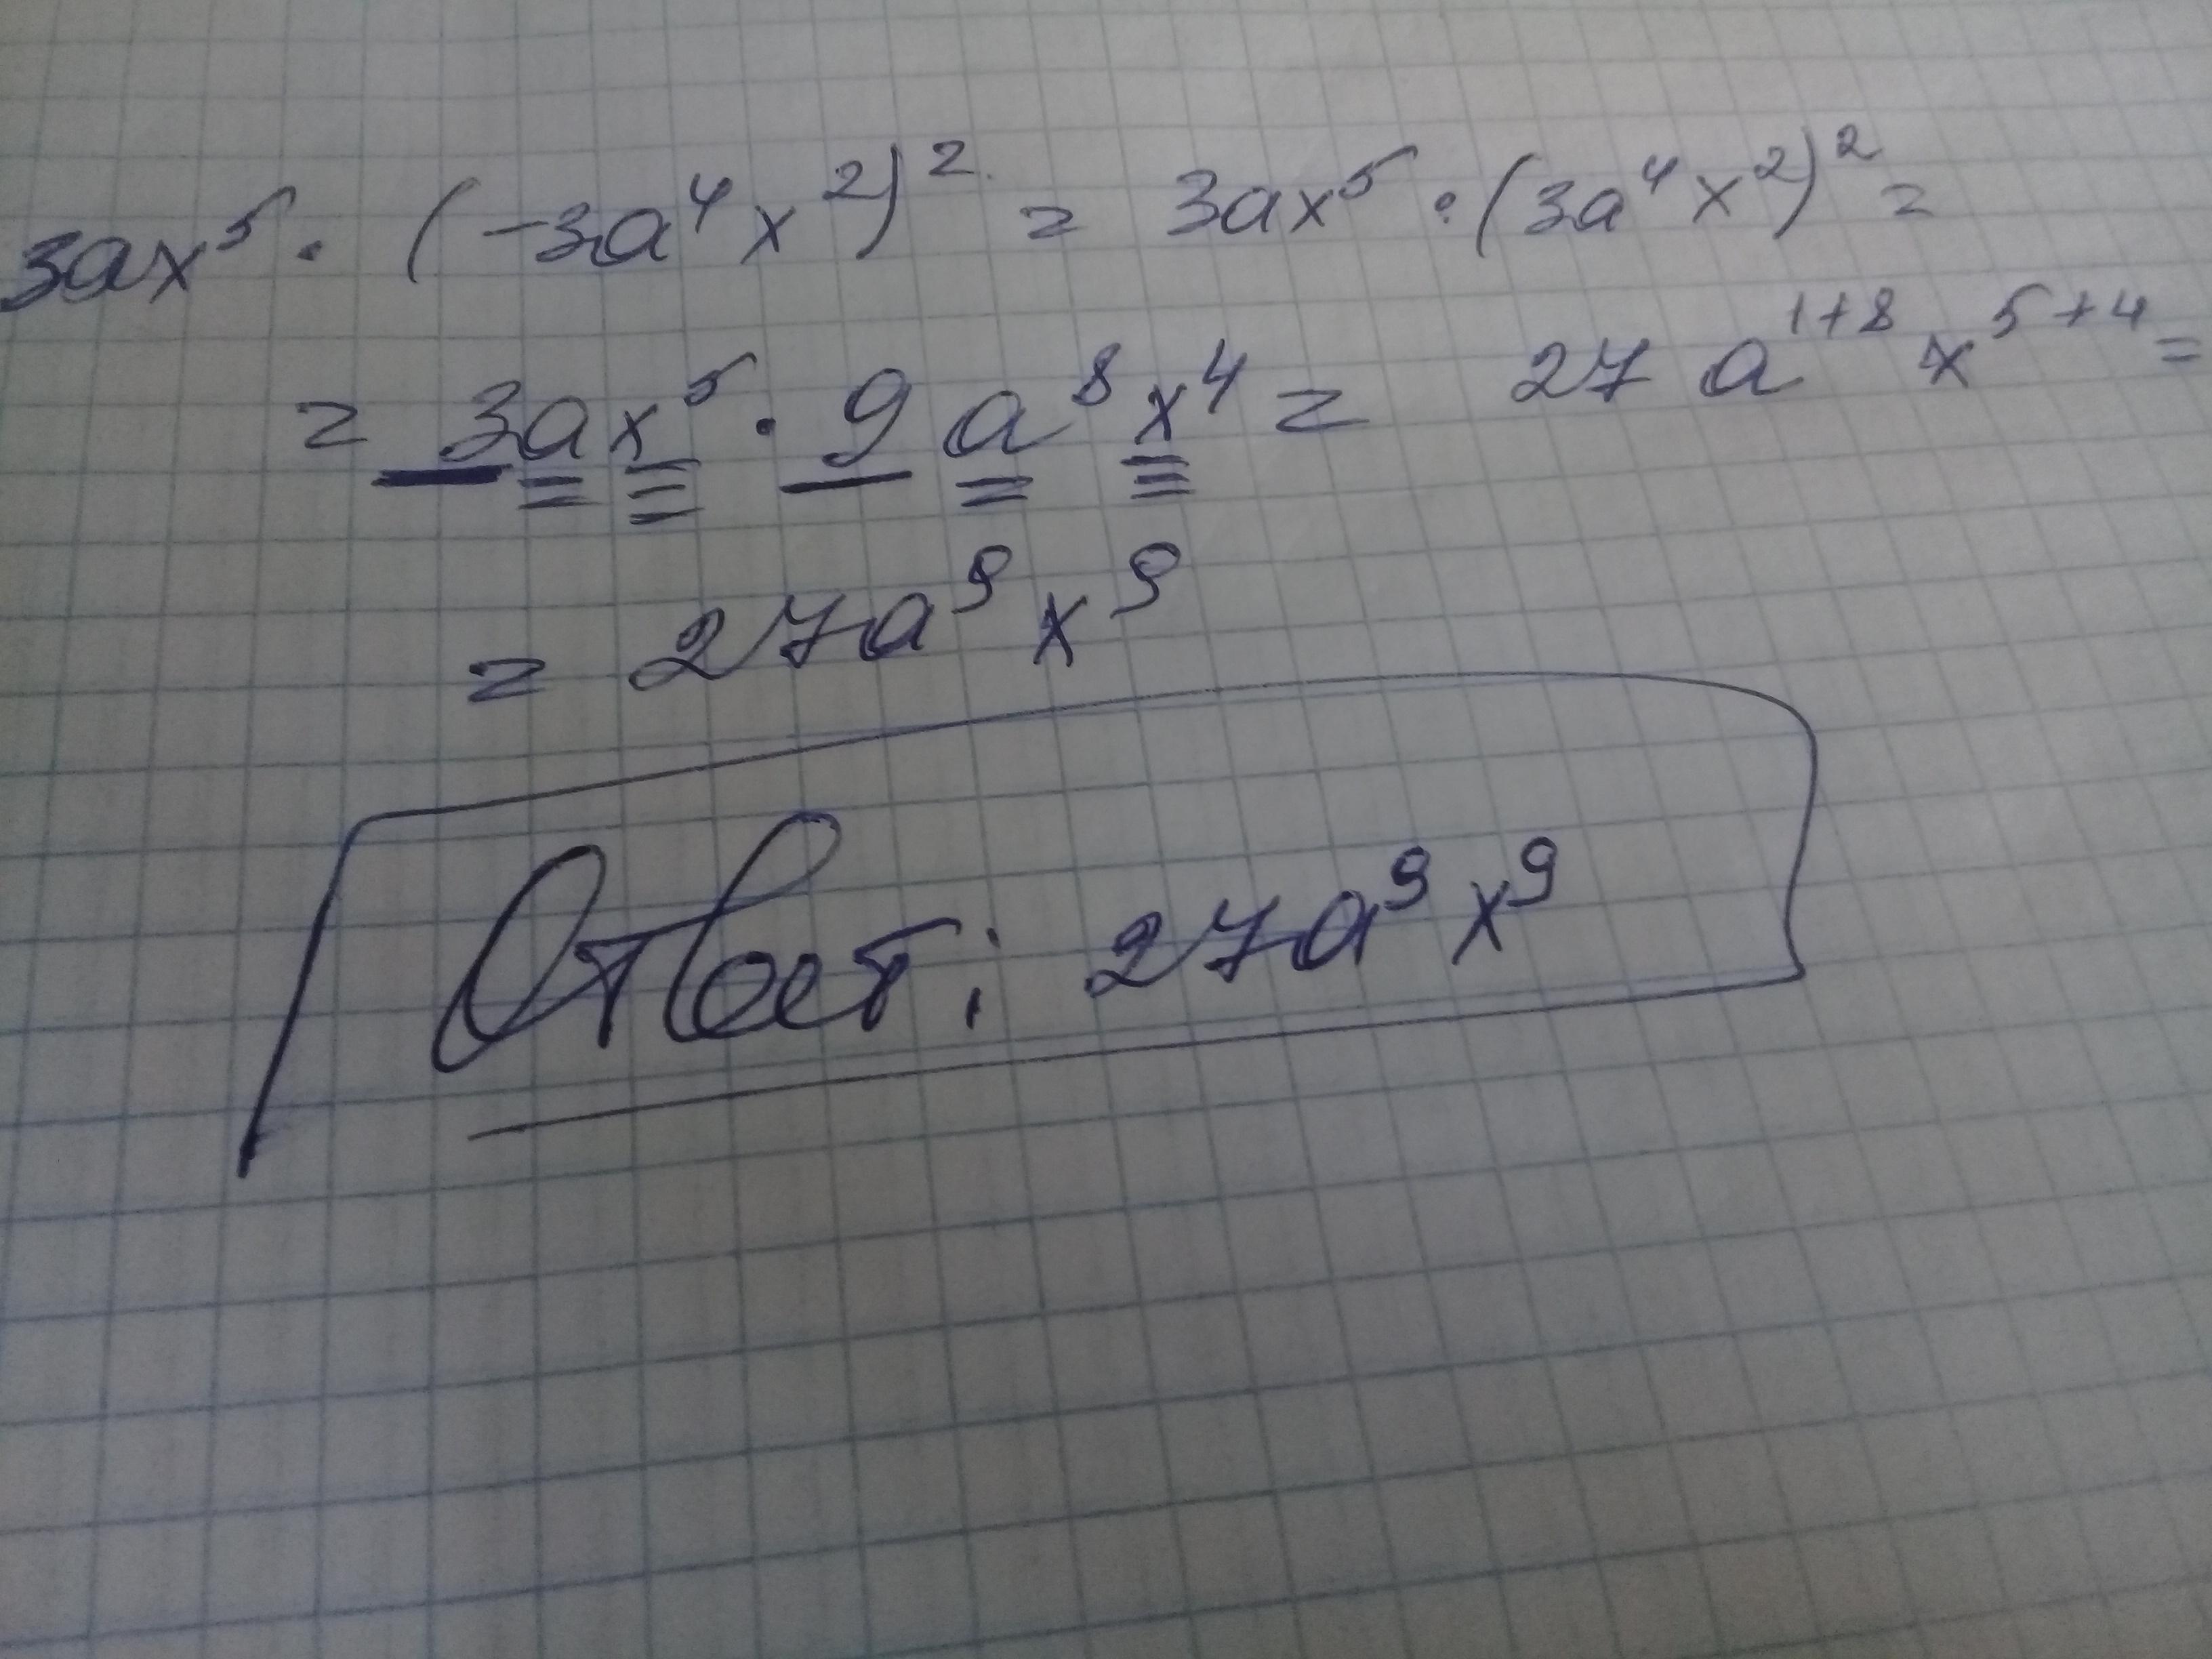 3ax⁵ · (-3a⁴x²)² = 3ax⁵ · (3a⁴x²)² =
= 3ax⁵ · 9a⁸x⁴ = 27a¹⁺⁸x⁵⁺⁴ =
= 27a⁹x⁹
Ответ: 27a⁹x⁹